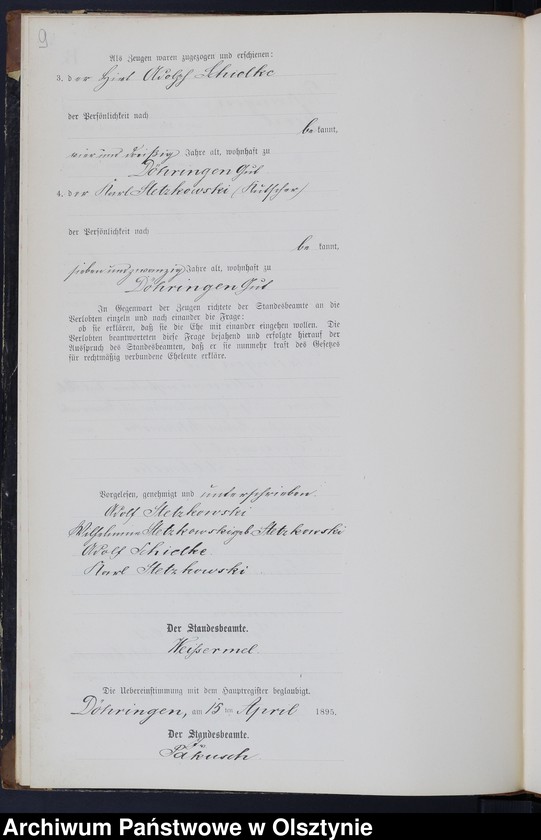 9
Als Zeugen waren zugezogen und erschienen:
3. der Hirt Adolph Schielke
der Persönlichkeit nach
be kannt,
vier und dreißig Jahre alt, wohnhaft zu
Döhringen Gut
4. der Karl Stetzkowski (Kutscher)
der Persönlichkeit nach
be kannt,
sieben und zwanzig Jahre alt, wohnhaft zu
Döhringen Gut
In Gegenwart der Zeugen richtete der Standesbeamte an die
Verlobten einzeln und nach einander die Frage:
ob sie erklären, daß sie die Ehe mit einander eingehen wollen. Die
Verlobten beantworteten diese Frage bejahend und erfolgte hierauf der
Ausspruch des Standesbeamten, daß er sie nunmehr kraft des Gesetzes
für rechtmäßig verbundene Eheleute erkläre.
Vorgelesen, genehmigt und unterschrieben.
Adolf Stetzkowski
Wilhelmine Stetzkowski geb. Stetzkowski
Adolf Schielke
Karl Stetzkowski
Der Standesbeamte.
Weißermel.
Die Uebereinstimmung mit dem Hauptregister beglaubigt.
Döhringen, am 15 ten April 1895.
Der Standesbeamte.
Archiwum Państwowe w Olsztynie